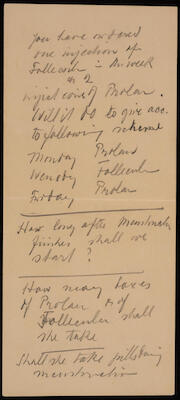 You have ordered
one injection of
Follecular in the week
2
injections of Prolan.
Will it do to give acc.
to following scheme
Monday Prolan
Wensday Follecular
Friday Prolan
How long after menstruation
finishes shall we
start?
How many boxes
of Prolan & of
Follecular shall
she take
Shall she take pills during
menstruation